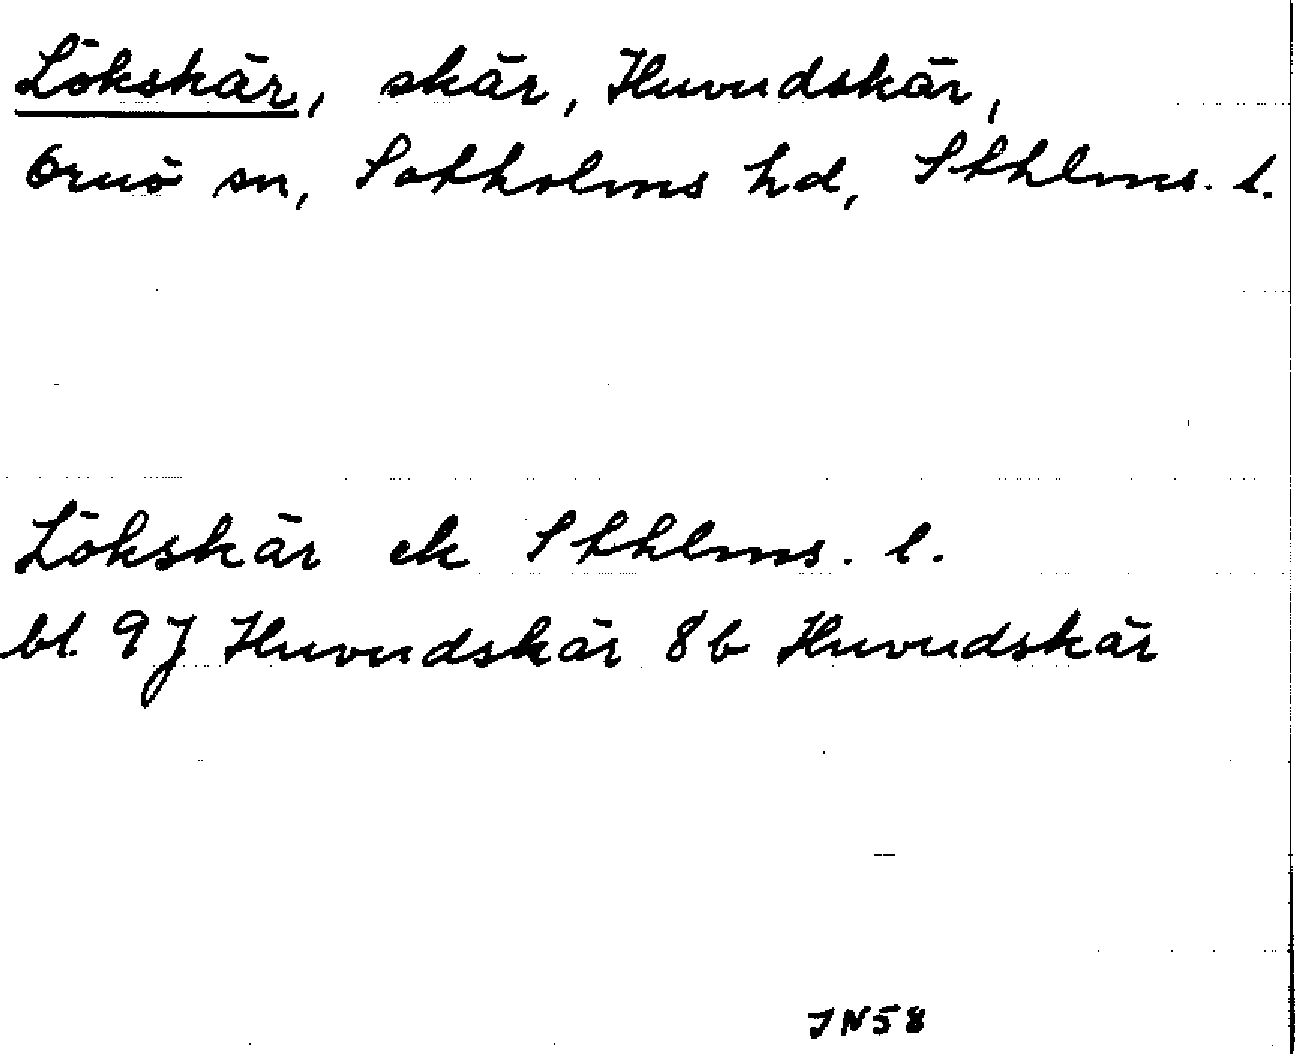 Lökskär, skär, Huvudskär,
Ornö sn, Sotholms hd, Sthlms. l.
Lökskär ek Sthlms. l.
bl 9J Huvudskär 8b Huvudskär
JN58